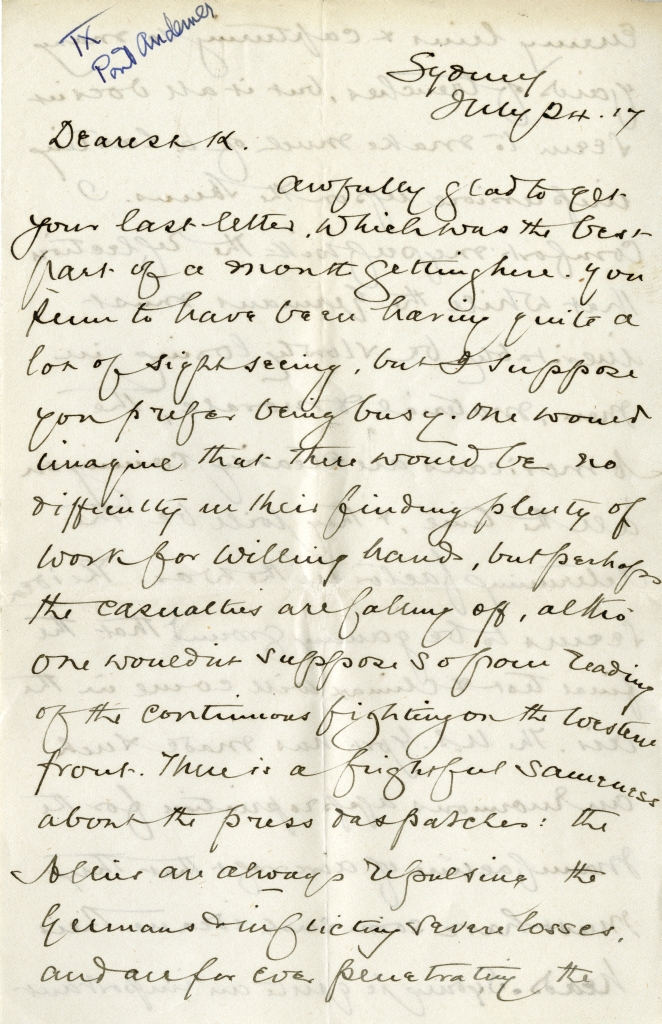 IX
Pont Andemer
Sydney
July 24. 17
Dearest K.
Awfully glad to get
your last letter, which was the best
part of a month getting here. You
seem to have been having quite a
lot of sight seeing, but I suppose
you prefer being busy. One would
imagine that there would be no
difficulty in their finding plenty of
work for willing hands, but perhaps
the casualties are falling off, altho
one wouldnt suppose so from reading
of the continuous fighting on the Western
front. There is a frightful sameness
about the press daspatches: the
Allies are always repulsing the
Germans & inflicting severe losses,
and are for ever penetrating the